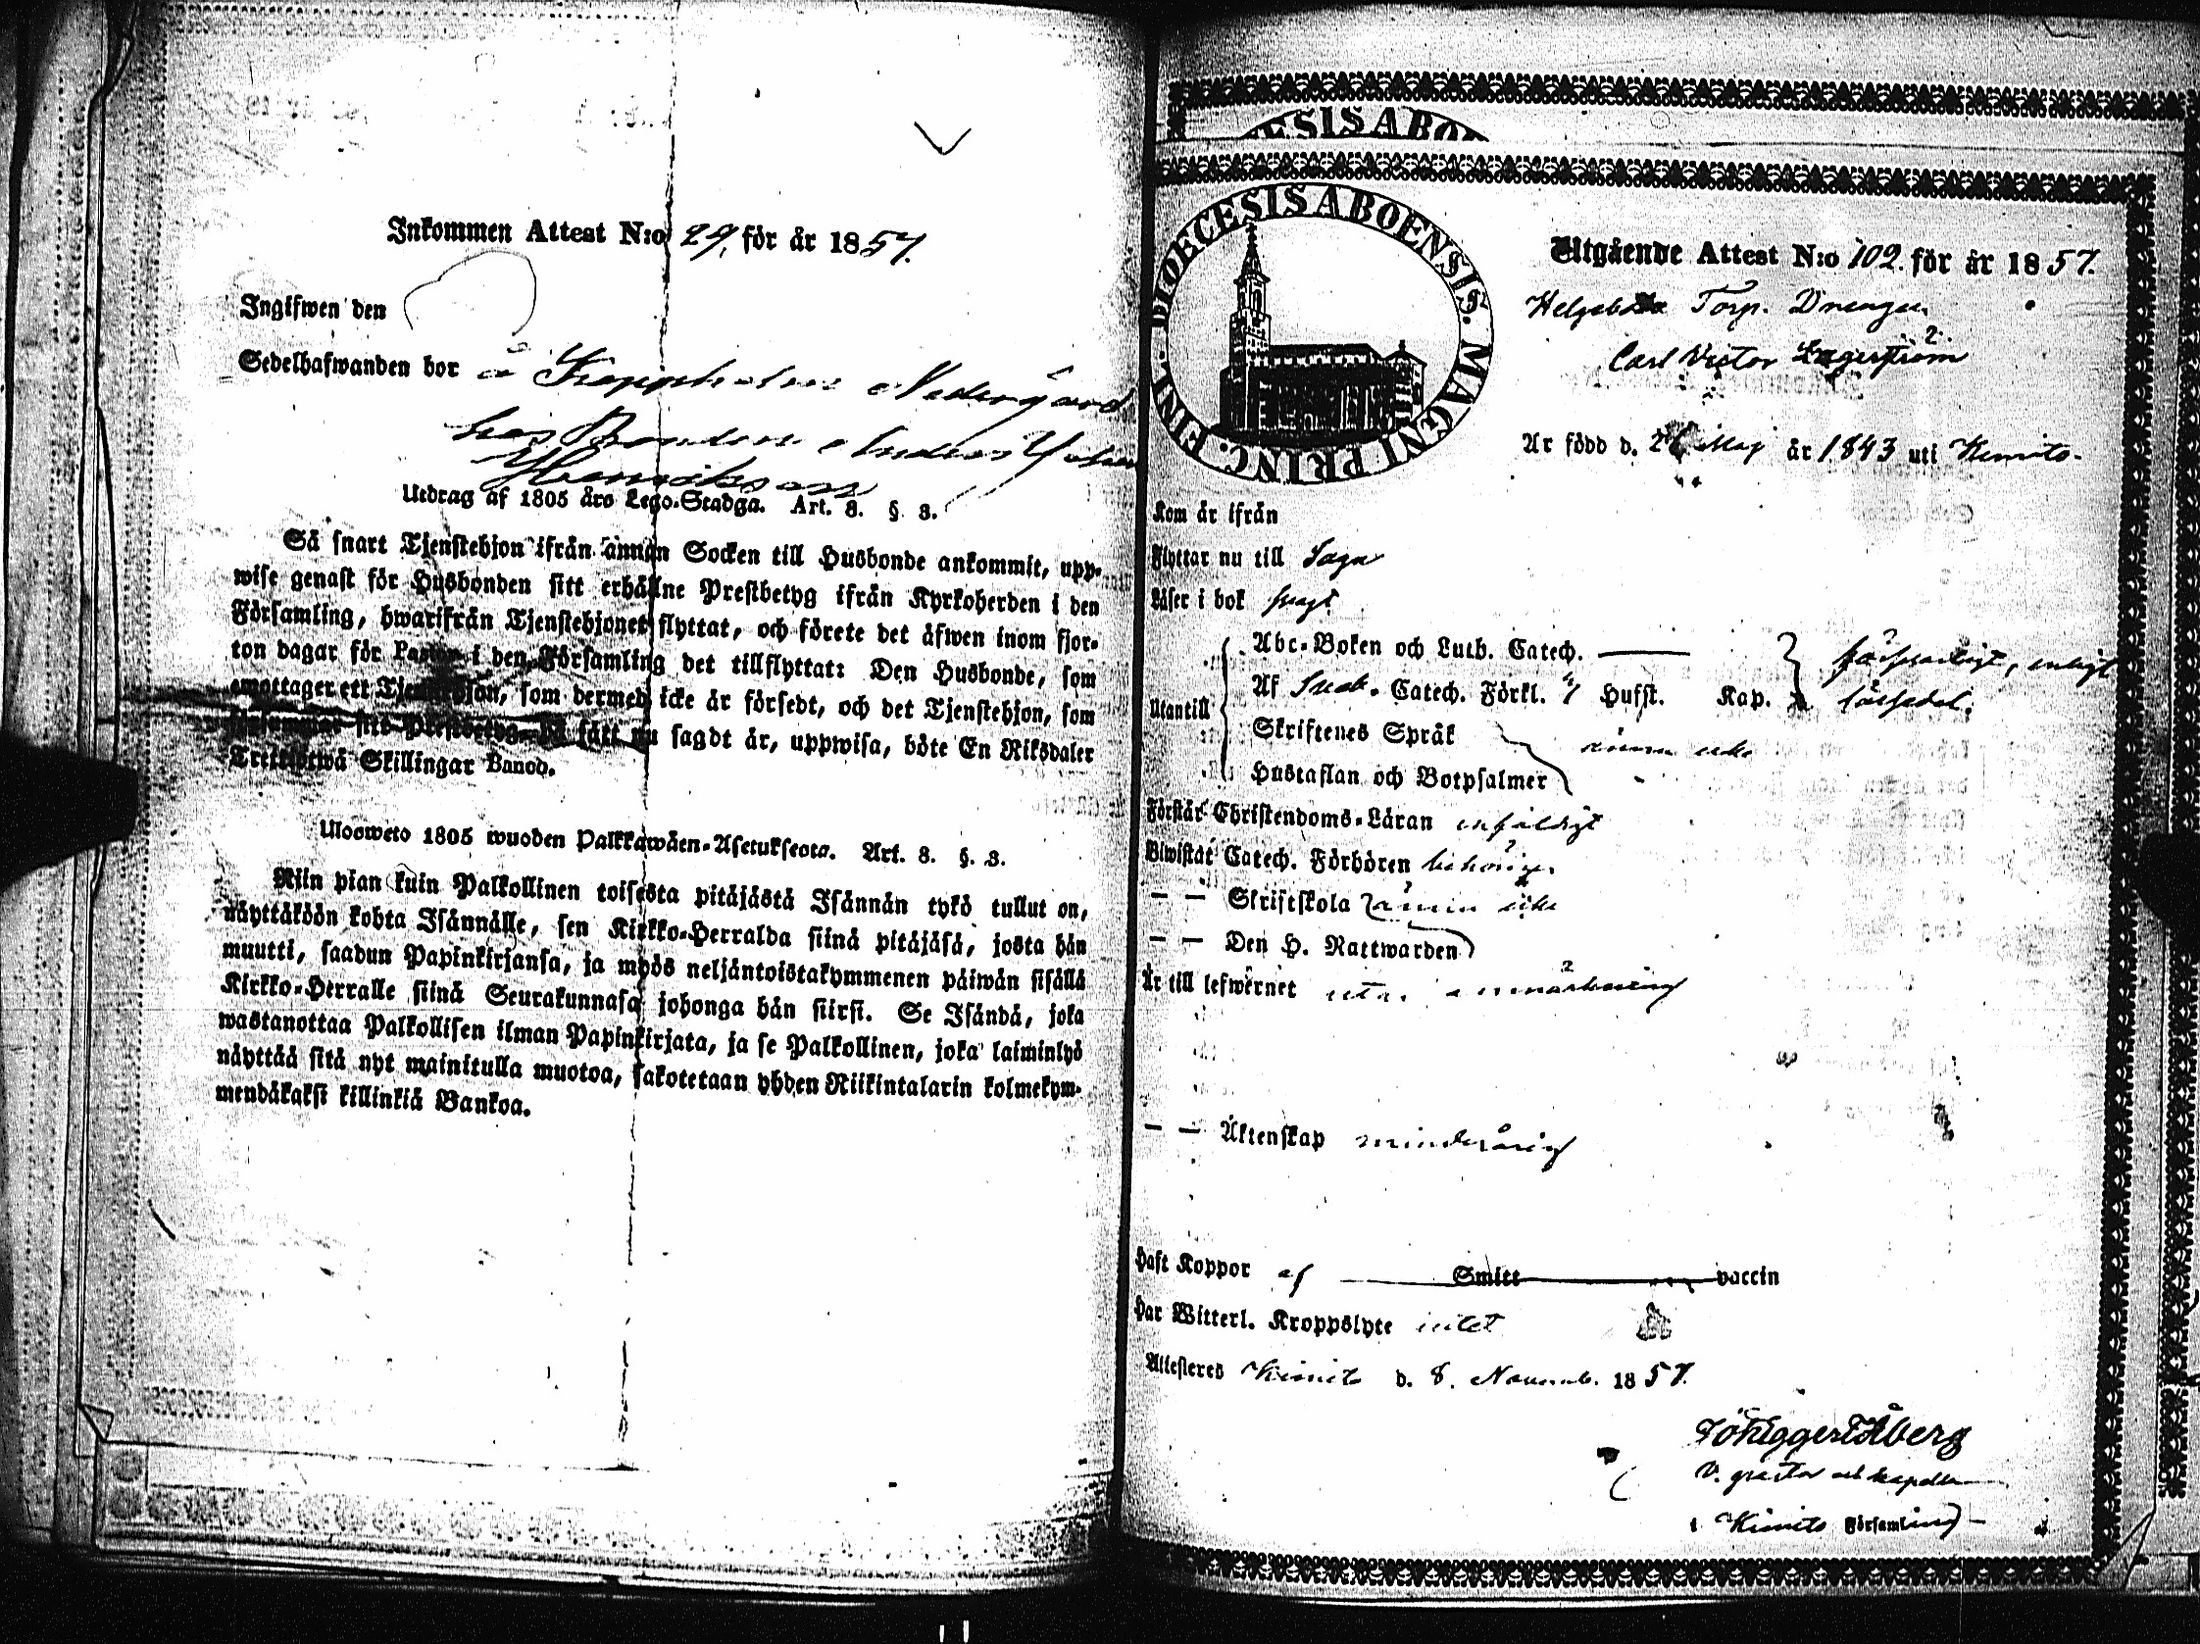 Inkommen Attest N:o 29. för år 1857.
Ingifwen den
Sedelhafwanden bor å Koppholm Nedergård
hos Bonden Anders Johan
Henriksson
Utdrag af 1805 års Lego-Stadga. Art. 8. §. 3.
Så snart Tjenstehjon ifrån annan Socken till Husbonde ankommit, upp-
wise genast för Husbonden sitt erhållne Prestbetyg ifrån Kyrkoherden i den
Församling, hwarifrån Tjenstehjonet flyttat, och förete det äfwen inom fjor-
ton dagar för Pastor i den Församling det tillflyttat: Den Husbonde, som
emottager ett Tjenstehjon, som dermed icke är försedt, och det Tjenstehjon, som
sitt Prestbetyg på sätt nu sagdt är, uppwisa, böte En Riksdaler
Trettiotwå Skillingar Banco.
Ulosweto 1805 wuoden Palkkawäen-Asetuksesta. Art. 8. §. 3.
Niin pian kuin Palkollinen toisesta pitäjästä Isännän tykö tullut on,
näyttäköön kohta Isännälle, sen Kirkko-Herralda siinä pitäjäsä, josta hän
muutti, saadun Papinkirjansa, ja myös neljäntoistakymmenen päiwän sisällä
Kirkko-Herralle siinä Seurakunnasa johonga hän siirsi. Se Isändä, joka
wastanottaa Palkollisen ilman Papinkirjata, ja se Palkollinen, joka laiminlyö
näyttää sitä nyt mainitulla muotoa, sakotetaan yhden Riikintalarin kolmekym-
mendäkaksi killinkiä Bankoa.
ESIS ABO
DIOECESIS ABOENSIS. MAGNI PRINC. FINL.
Utgående Attest N:o 102. för år 1857.
Torp. Drengen
Carl Victor Lagerström
Är född d. Maj år 1843 uti Kimito.
Kom år ifrån
Flyttar nu till Sagu
Läser i bok svagt
Utantill
Abc-Boken och Luth. Catech.
försvarligt, enligt
Af Sveb. Catech. Förkl. Hufst. Kap.
läsSedel.
Skriftenes Språk
ännu icke
Hustaflan och Botpsalmer
Förstår Christendoms-Läran enfaldigt
Biwistat Catech. Förhören behörigt.
— — Skriftskola ännu icke
— — Den H. Nattwarden
Är till lefwernet utan anmärkning
— — Äktenskap minderårig
Haft Koppor af Smitt vaccin
Har Witterl. Kroppslyte intet
Attesteres Kimito d. 8. Novemb. 1857.
Åberg
V. pastor och kapellan
i Kimito Församling